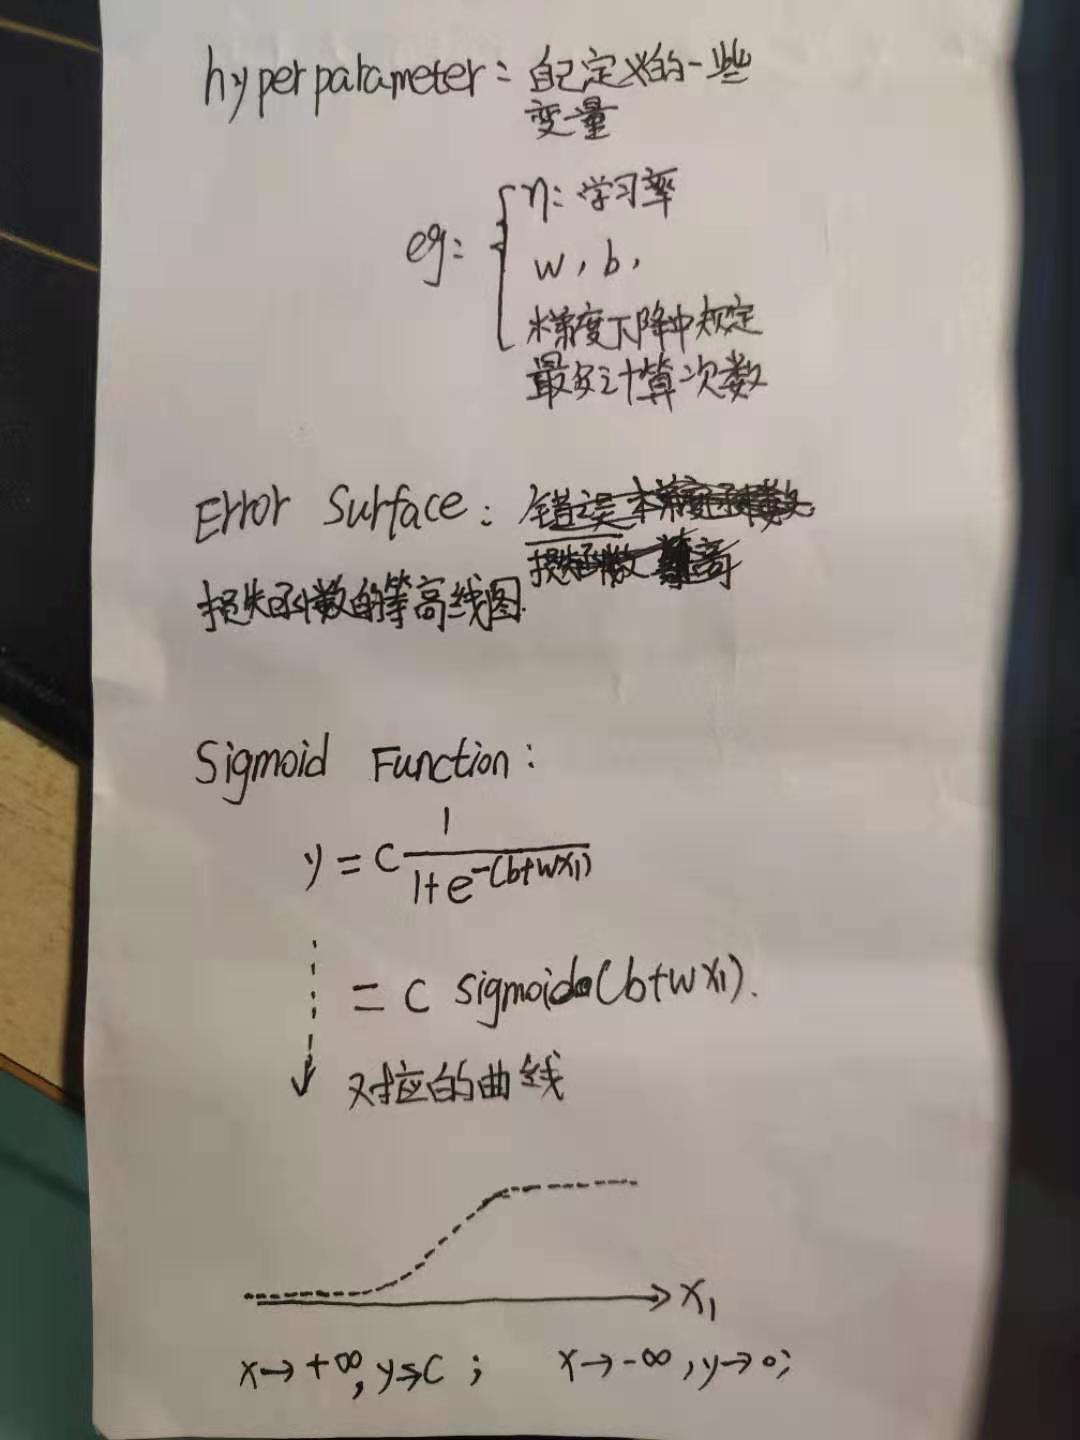 hyperparameter: 自己定义的一些
变量
eg: η: 学习率
w, b,
梯度下降中规定
最多计算次数
Error Surface: 错误
损失函数 等高
损失函数的等高线图.
Sigmoid Function:
y = c 1/(1+e^-(b+wx₁))
= c sigmoid(b+wx₁).
对应的曲线
x₁
x→+∞, y→c ; x→-∞, y→0;